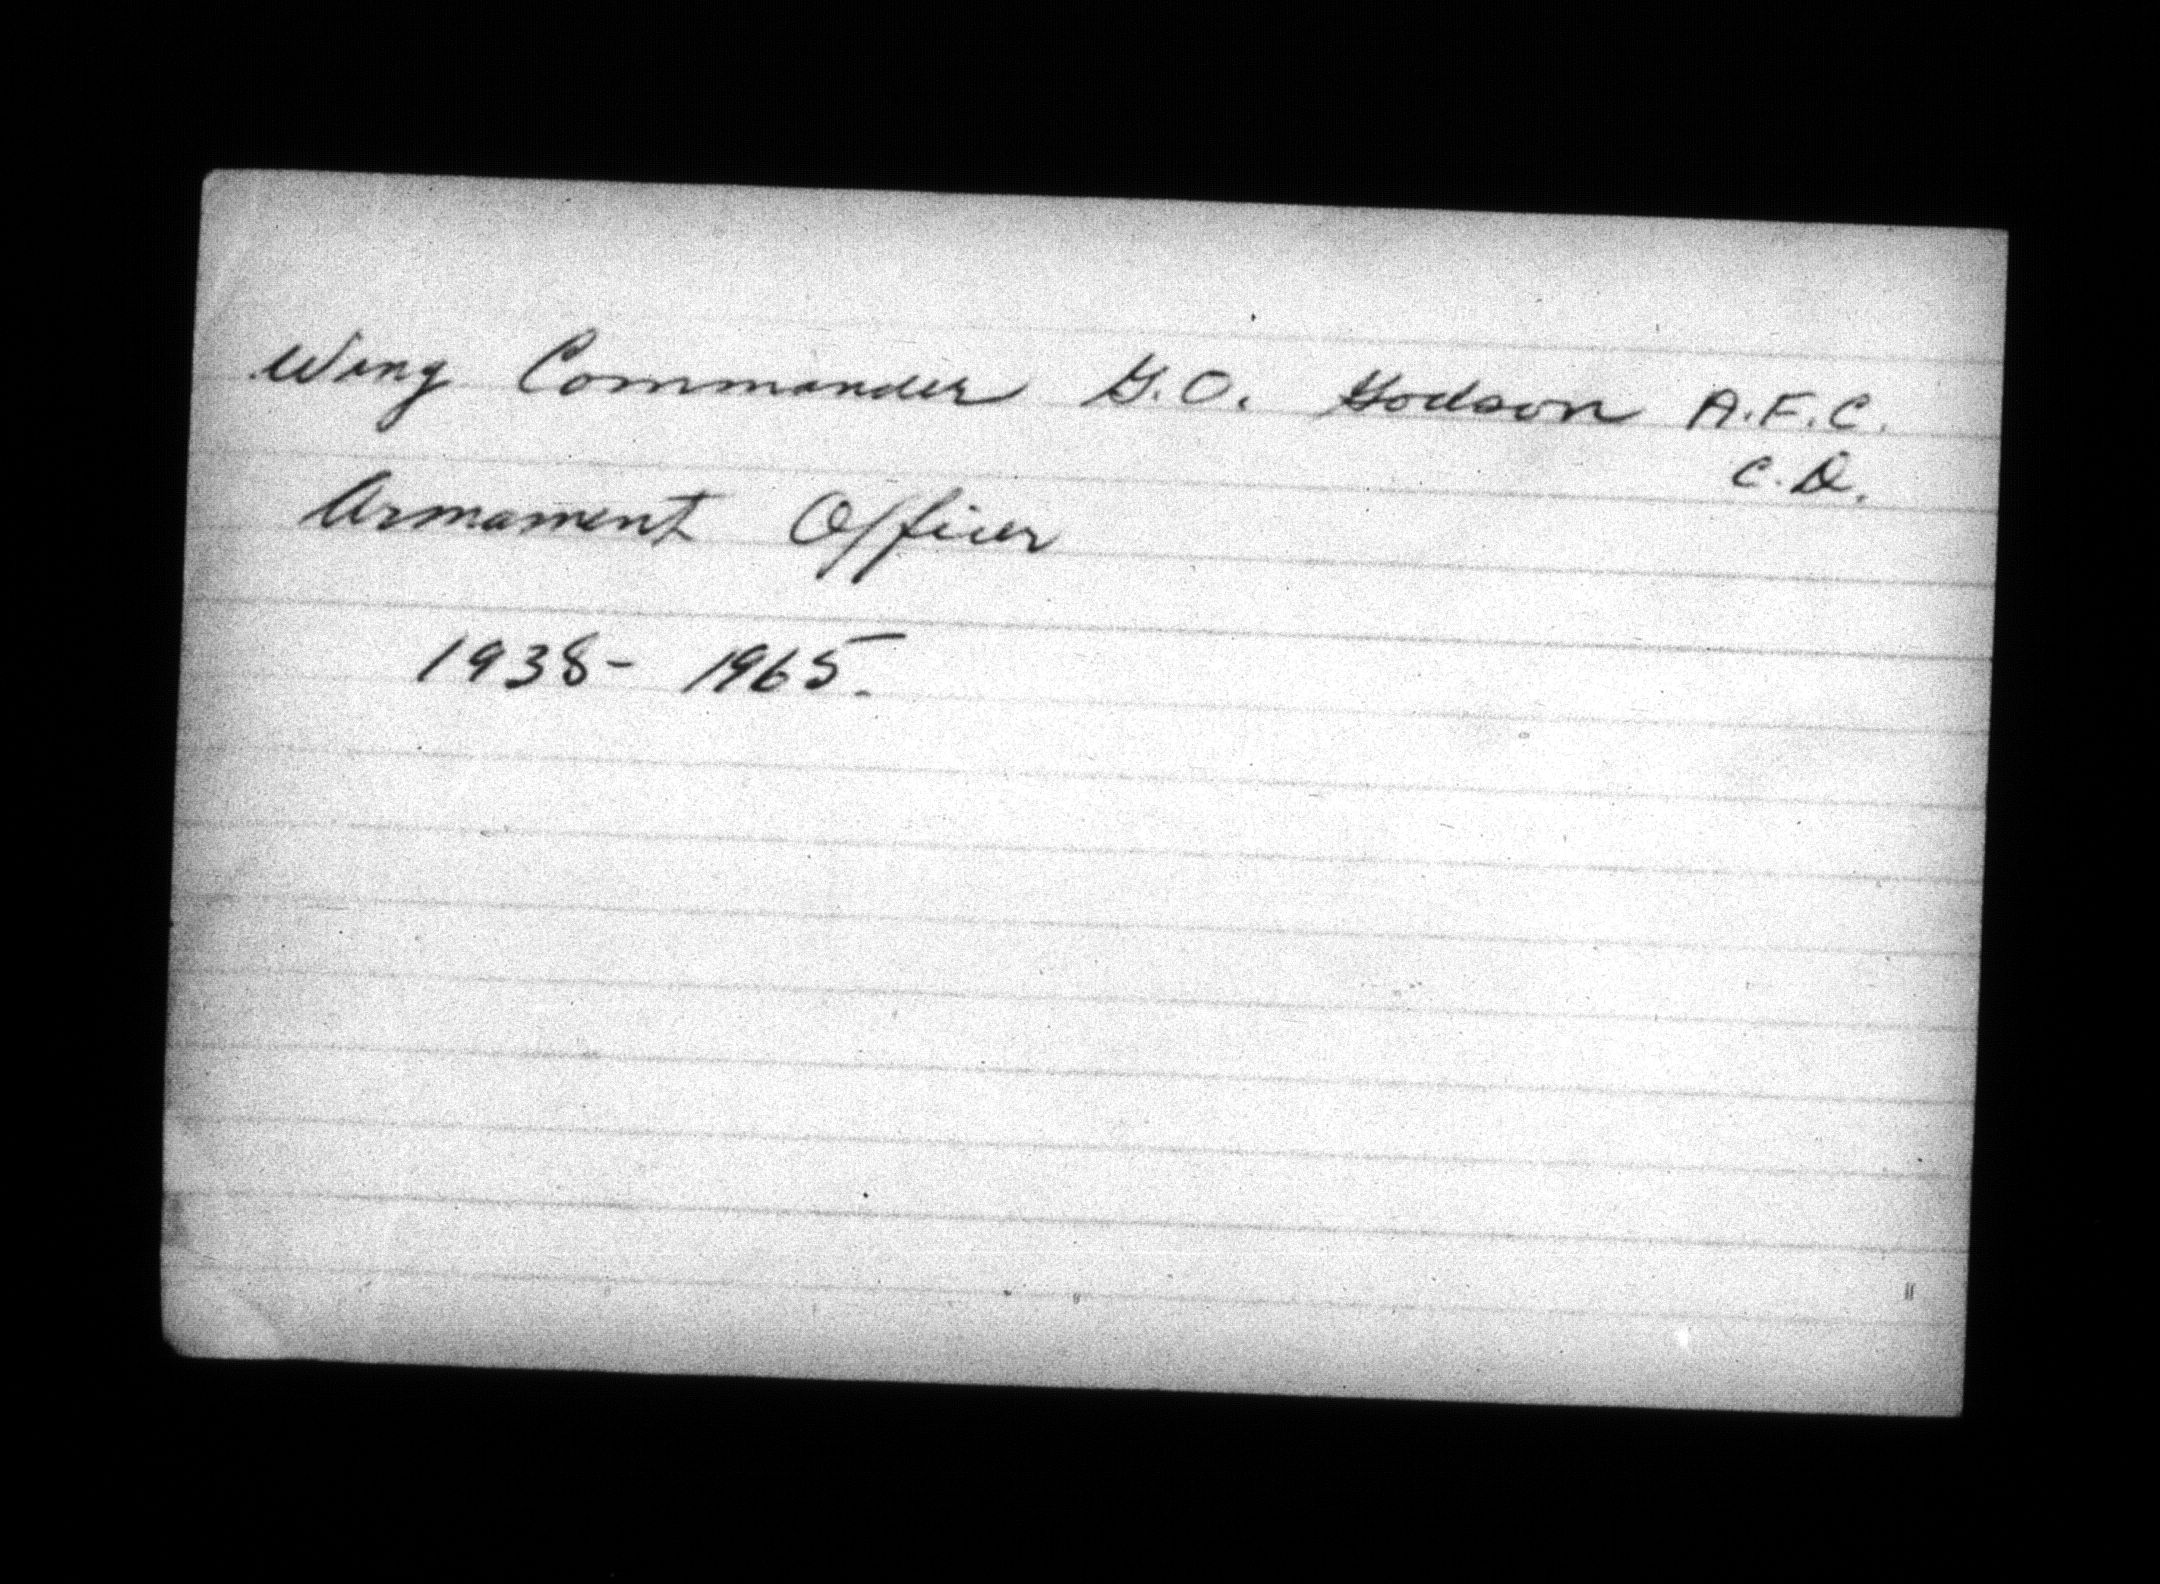 Wing Commander G.O. Godson A.F.C.
C.D.
Armament Officer
1938- 1965.